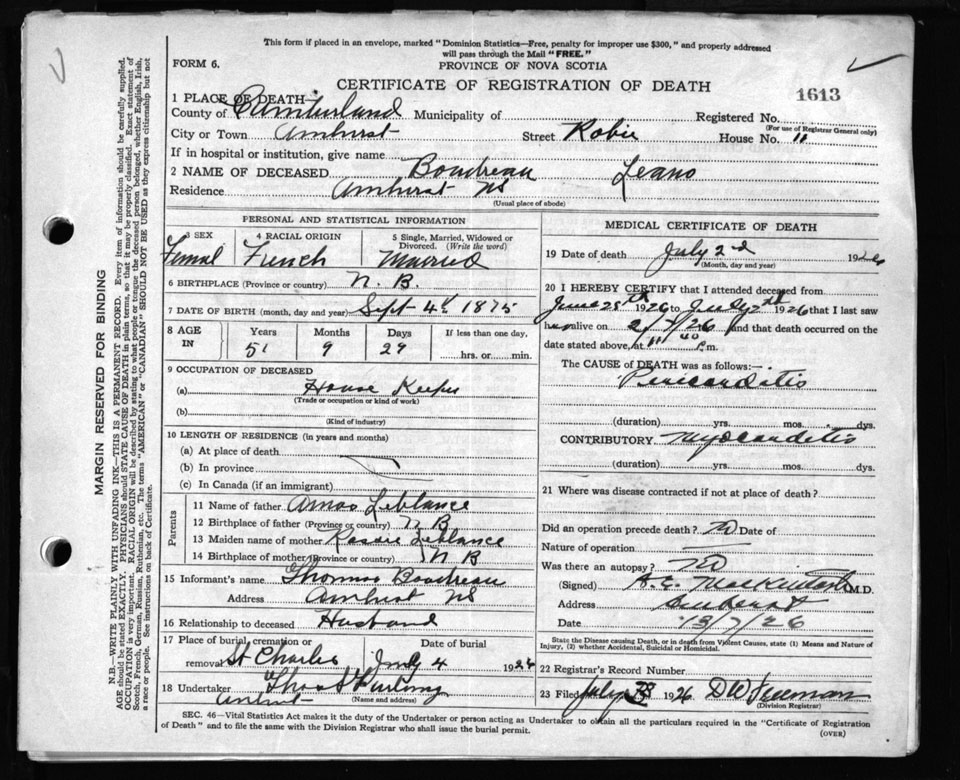 This form if placed in an envelope, marked "Dominion Statistics—Free, penalty for improper use $300," and properly addressed
will pass through the Mail "FREE."
FORM 6.
PROVINCE OF NOVA SCOTIA
CERTIFICATE OF REGISTRATION OF DEATH
1613
1 PLACE OF DEATH—
County of Cumberland Municipality of Registered No.
(For use of Registrar General only)
City or Town Amhurst Street Robie House No. 11
If in hospital or institution, give name
2 NAME OF DECEASED Boudreau Leano
Residence Amhurst NS
(Usual place of abode)
PERSONAL AND STATISTICAL INFORMATION
3 SEX 4 RACIAL ORIGIN 5 Single, Married, Widowed or Divorced. (Write the word)
Femal French Married
6 BIRTHPLACE (Province or country) N. B.
7 DATE OF BIRTH (month, day and year) Sept 4th 1875
8 AGE IN Years Months Days If less than one day,
51 9 29 hrs. or min.
9 OCCUPATION OF DECEASED
(a) House Keeper
(Trade or occupation or kind of work)
(b)
(Kind of industry)
10 LENGTH OF RESIDENCE (in years and months)
(a) At place of death
(b) In province
(c) In Canada (if an immigrant)
Parents
11 Name of father Amos Leblance
12 Birthplace of father (Province or country) N B
13 Maiden name of mother Leblance
14 Birthplace of mother (Province or country) N B
15 Informant's name Thomas Boudreau
Address Amhurst NS
16 Relationship to deceased Husband
17 Place of burial, cremation or removal St Charles
Date of burial July 4 1926
18 Undertaker
(Name and address)
MEDICAL CERTIFICATE OF DEATH
19 Date of death July 2nd 1926
(Month, day and year)
20 I HEREBY CERTIFY that I attended deceased from
June 25th 1926 to July 2nd 1926 that I last saw
h alive on 2/7/26 and that death occurred on
date stated above, at 11 40 P.m.
The CAUSE OF DEATH was as follows:
Pericarditis
(duration) yrs. mos. dys.
CONTRIBUTORY Myocarditis
(duration) yrs. mos. dys.
21 Where was disease contracted if not at place of death?
Did an operation precede death? no Date of
Nature of operation
Was there an autopsy? no
(Signed) A. E. MacKintosh M.D.
Address Amherst
Date 13/7/26
State the Disease causing Death, or in death from Violent Causes, state (1) Means and Nature of
Injury, (2) whether Accidental, Suicidal or Homicidal.
22 Registrar's Record Number
23 Filed July 1926 D W Freeman
(Division Registrar)
SEC. 46—Vital Statistics Act makes it the duty of the Undertaker or person acting as Undertaker to obtain all the particulars required in the "Certificate of Registration
of Death" and to file the same with the Division Registrar who shall issue the burial permit.
(OVER)
MARGIN RESERVED FOR BINDING
N.B.—WRITE PLAINLY WITH UNFADING INK—THIS IS A PERMANENT RECORD. Every item of information should be carefully supplied.
AGE should be stated EXACTLY. PHYSICIANS should STATE CAUSE OF DEATH in plain terms, so that it may be properly classified. Exact statement of
OCCUPATION is very important. RACIAL ORIGIN will be described by stating to what people or tongue the deceased person belonged, whether English, Irish,
Scotch, French, German, Russian, Ruthenian, etc. The terms "AMERICAN" or "CANADIAN" SHOULD NOT BE USED as they express citizenship but not
a race or people. See instructions on back of Certificate.